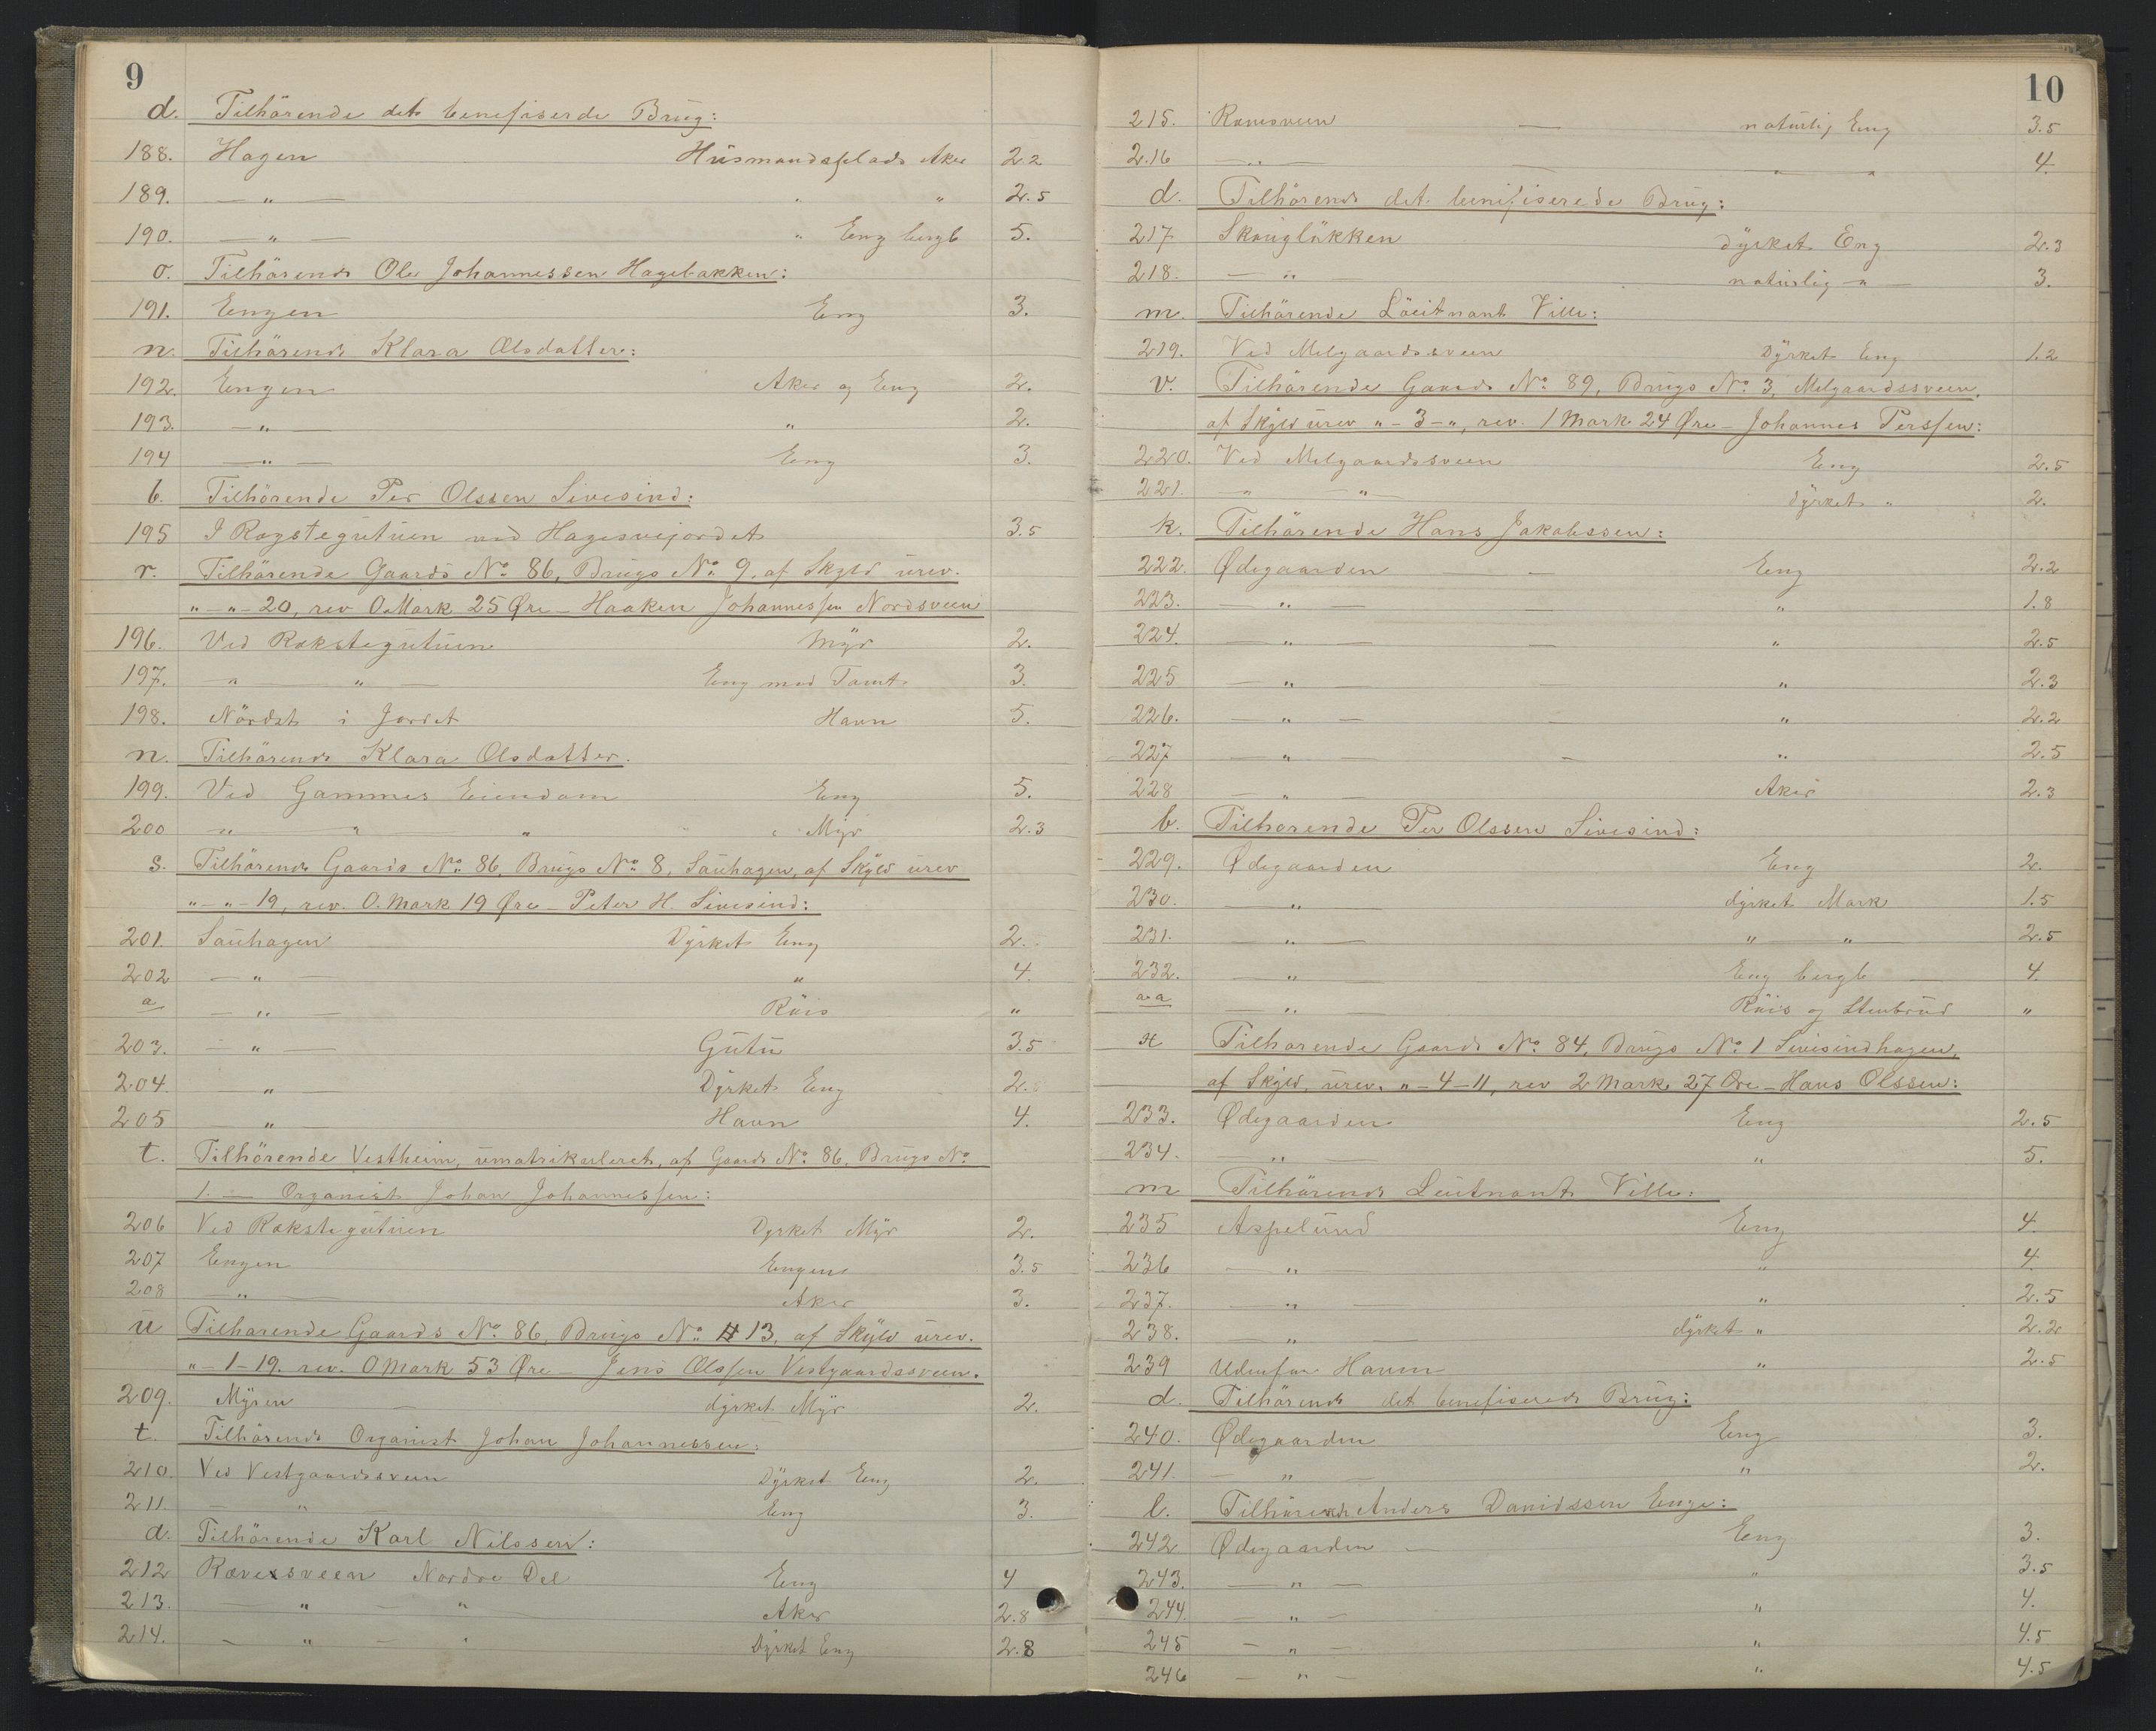 9
d. Tilhörende det benefiserde Brug:
188. Hagen Husmandsplads Aker 2.2
189. — " — " " 2.5
190. — " — " Eng bergb 5.
o. Tilhörende Ole Johannessen Hagebakken:
191. Engen Eng 3.
n. Tilhörende Klara Olsdatter:
192. Engen Aker og Eng 2.
193. — " — " 2.
194 — " — Eng 3.
b. Tilhörende Per Olssen Sivesind:
195 I Rogstegutuen ved Hagesvejordet 3.5
r. Tilhörende Gaards No. 86, Brugs No. 9, af Skyld urev.
" — " — 20, rev 0 Mark 25 Øre — Haaken Johannessen Nordsveen
196. Ved Rokstegutuen Myr 2.
197. — " — " — Eng med Tomt 3.
198. Nördst i Jordet Havn 5.
n. Tilhörende Klara Olsdatter.
199. Ved Gammes Eiendom Eng 5.
200 — " — " — " " Myr 2.3
s. Tilhörende Gaards No. 86, Brugs No. 8, Sauhagen, af Skyld urev
" — " — 19, rev. 0. Mark 19 Øre — Peter H. Sivesind:
201. Sauhagen Dyrket Eng 2.
202 — " — " 4.
a — " — Röis "
203. — " — Gutu 3.5
204. " — Dyrket Eng 2.
205 — " — Havn 4.
t. Tilhörende Vestheim, umatrikuleret, af Gaards No. 86, Brugs No.
1. — Organist Johan Johannessen:
206 Ved Rokstegutuen Dyrket Myr 2.
207 Engen Engen 3.5
208 — " — Aker 3.
u Tilhörende Gaards No. 86, Brugs No. 13, af Skyld urev.
" — 1 — 19. rev. 0 Mark 53 Øre — Jens Olssen Vestgaardssveen.
209. Myren — dyrket Myr 2.
t. Tilhörende Organist Johan Johannessen:
210. Ved Vestgaardssveen Dyrket Eng 2.
211. — " — Eng 3.
d. Tilhörende Karl Nilssen:
212 Rovessveen Nordre Del Eng 4
213. — " — " — Aker 2.8
214. — " — " Dyrket Eng 2.8
10
215. Rovesveen — naturlig Eng 3.5
2.16 — " — — " " 4.
d. Tilhörende det benifiserede Brug:
217 Skouglökken dyrket Eng 2.3
218. — " — naturlig — " — 3.
m. Tilhörende Löitnant Ville:
219. Ved Melgaardssveen Dyrket Eng 1.2
v. Tilhörende Gaards No. 89, Brugs No. 3, Melgaardssveen,
af Skyld urev " — 3 — ", rev. 1 Mark 24 Øre — Johannes Perssen:
220. Ved Melgaardssveen Eng 2.5
221. " — " — dyrket " 2.
k. Tilhörende Hans Jakobssen:
222. Ødegaarden — Eng 2.2
223. — " — — " 1.8
224. — " — — " 2.5
225 — " — " 2.3
226. — " — — " 2.2
227 — " — — " 2.5
228 — " — Aker 2.3
b. Tilhorende Per Olssen Sivesind:
229. Ødegaarden Eng 2.
230. — " — dyrket Mark 1.5
231. — " — " — " — 2.5
232. — " — Eng bergb — 4.
aa — " — Röis og Stenbrud "
x Tilhorende Gaards No. 84, Brugs No. 1 Sivesindhagen,
af Skyld, urev. " — 4 — 11, rev 2 Mark 27 Øre — Hans Olssen:
233. Ødegaarden Eng 2.5
234. — " — " 5.
m Tilhörende Leutnant Ville:
235 Aspelund Eng 4.
236 — " — " 4.
237. — " — " 2.5
238. — " — dyrket " 2.2
239 Udenfor Havnen " 2.5
d. Tilhörende det benefiserede Brug:
240. Ødegaarden Eng 3.
241. — " — " 2.
l. Tilhörende Anders Davidssen Enge:
242 Ødegaarden — Eng 3.
243. — " — " 3.5
244. — " — " 4.
245 — " — " 4.5
246 — " — " 4.5